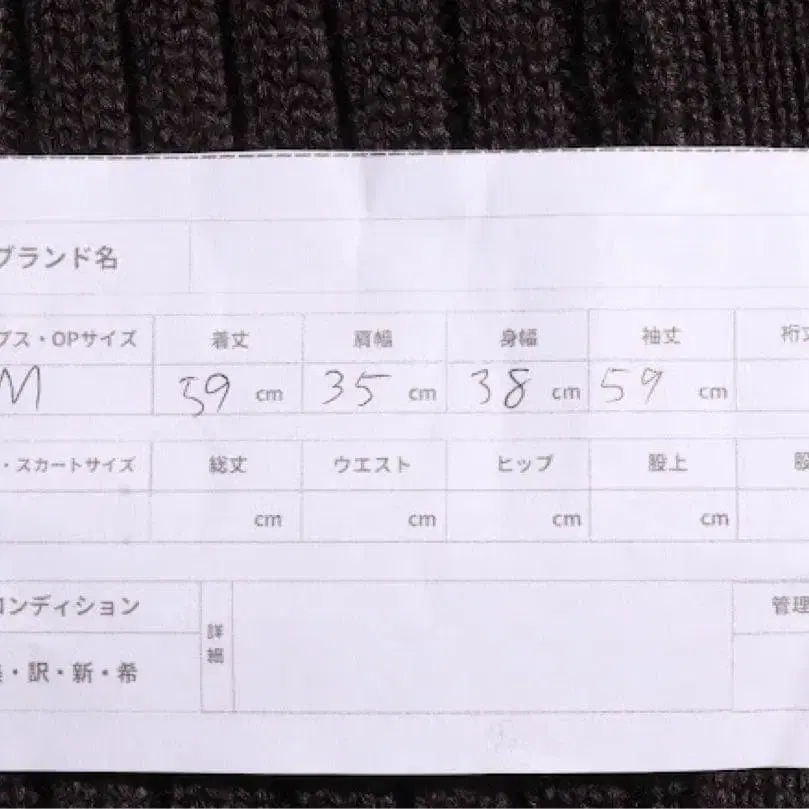 ブランド名
プス・OPサイズ 着丈 肩幅 身幅 袖丈 裄丈
M 59 cm 35 cm 38 cm 59 cm
・スカートサイズ 総丈 ウエスト ヒップ 股上 股
cm cm cm cm
コンディション 詳細 管理
・訳・新・希